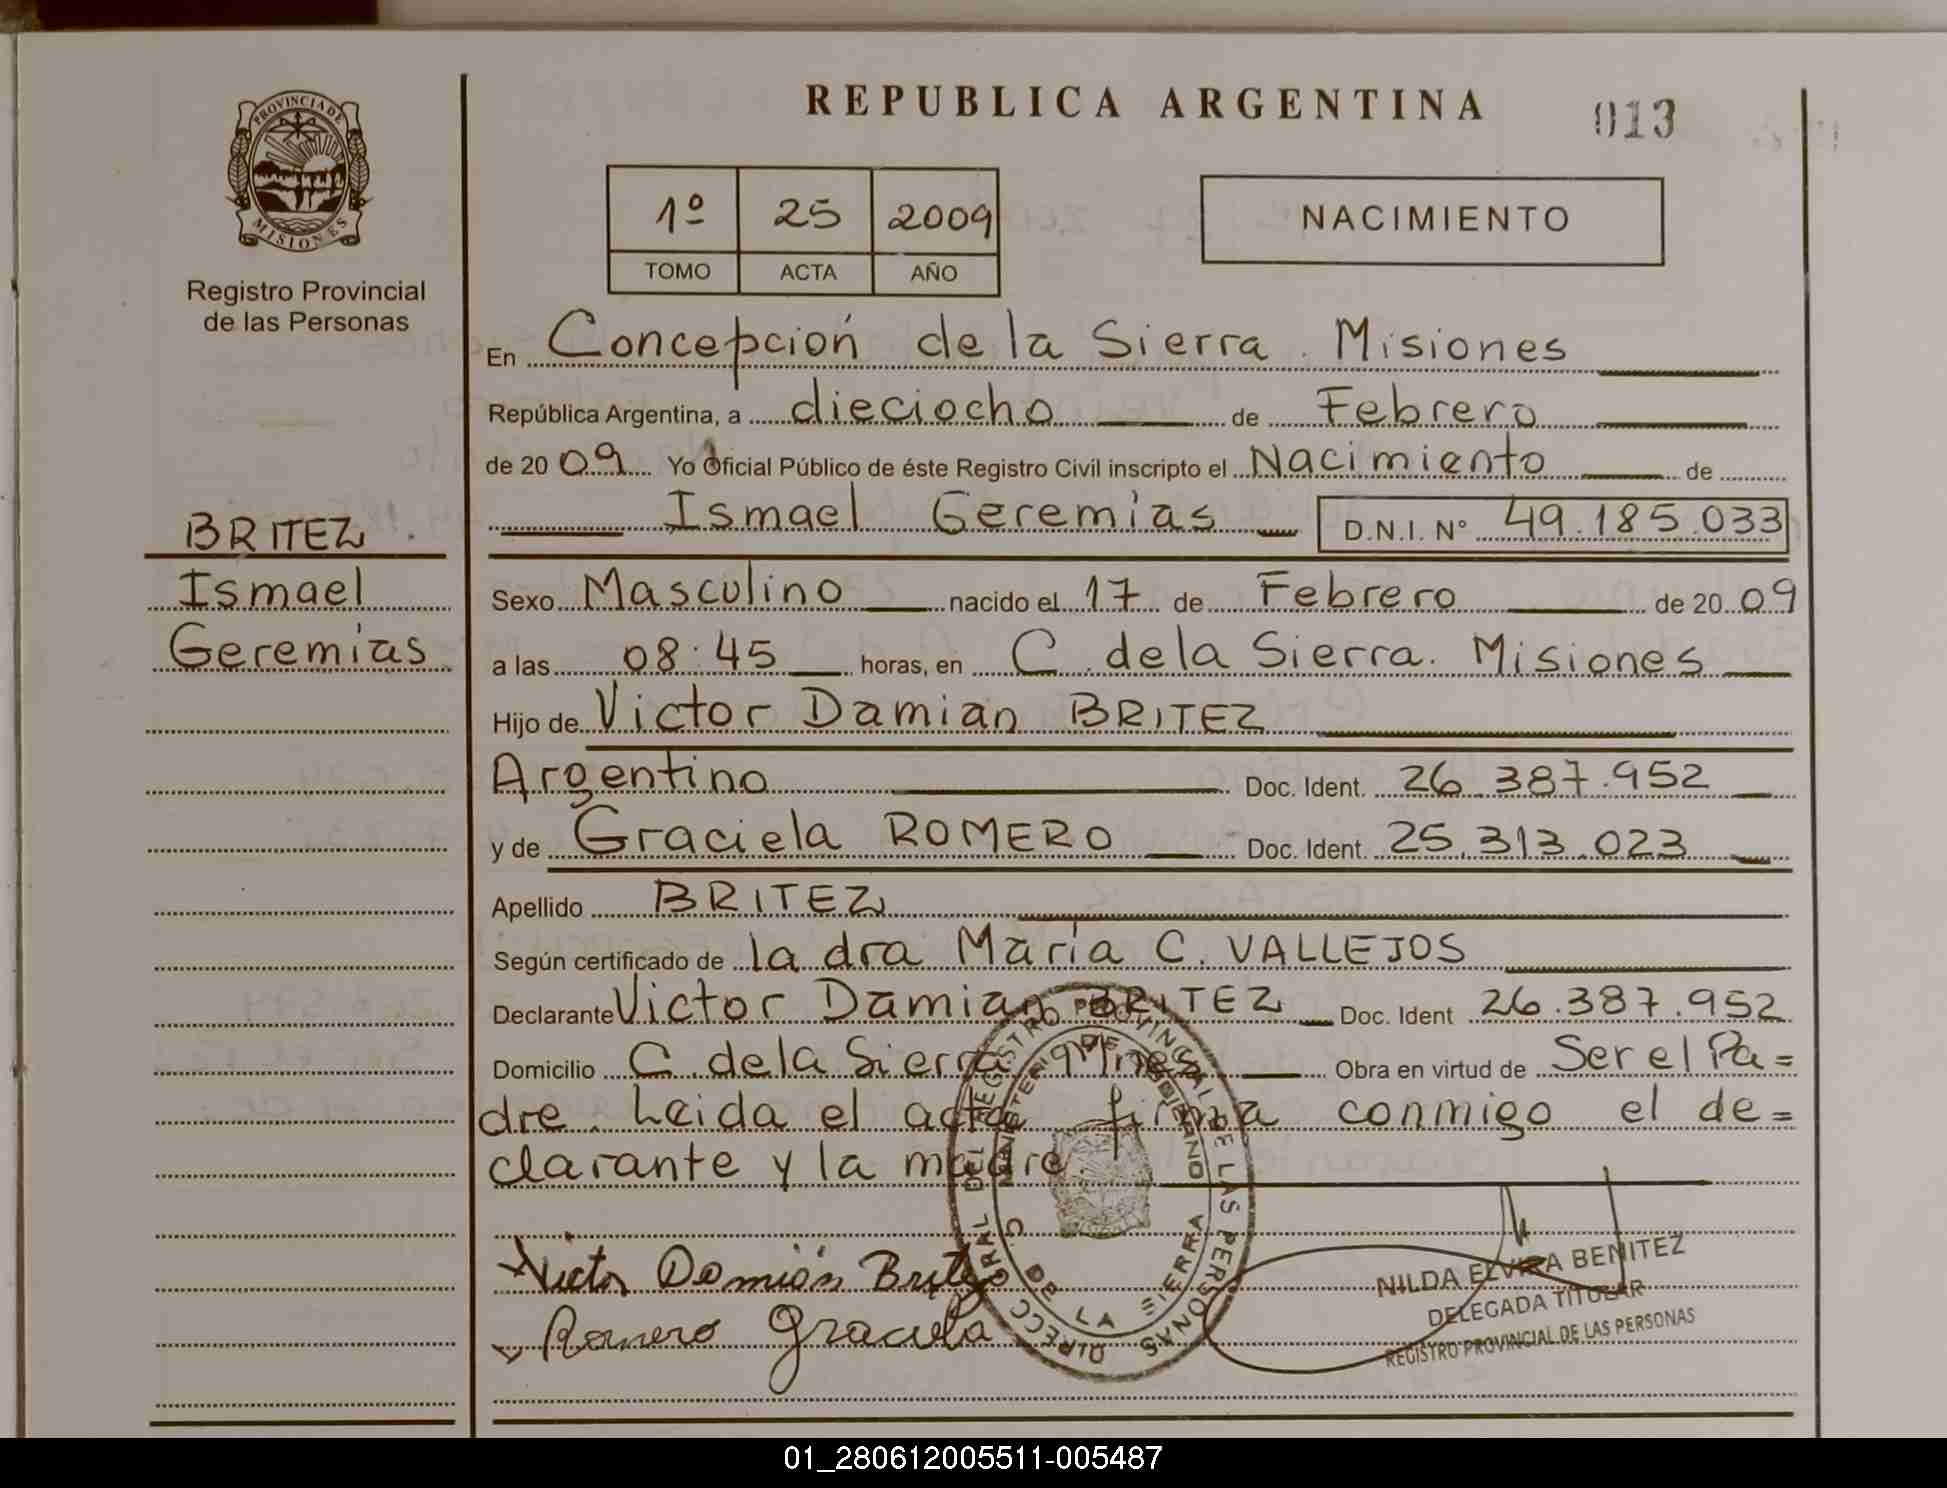 REPUBLICA ARGENTINA
013
PROVINCIA DE
MISIONES
Registro Provincial
de las Personas
1º 25 2009
TOMO ACTA AÑO
NACIMIENTO
En Concepción de la Sierra. Misiones
República Argentina, a dieciocho de Febrero
de 2009 Yo Oficial Público de éste Registro Civil inscripto el Nacimiento de
Ismael Geremías D.N.I. N° 49.185.033
BRITEZ
Ismael
Geremías
Sexo Masculino nacido el 17 de Febrero de 2009
a las 08:45 horas, en C. de la Sierra. Misiones
Hijo de Victor Damian BRITEZ
Argentino Doc. Ident. 26.387.952
y de Graciela ROMERO Doc. Ident. 25.313.023
Apellido BRITEZ
Según certificado de la dra María C. VALLEJOS
Declarante Victor Damian BRITEZ Doc. Ident 26.387.952
Domicilio C. de la Sierra Mnes Obra en virtud de Ser el Pa=
dre. Leida el acta firma conmigo el de=
clarante y la madre.
Victor Damián Britez
Romero Graciela
DIRECC. GRAL DEL REGISTRO PROVINCIAL DE LAS PERSONAS
MINISTERIO DE GOBIERNO
C. DE LA SIERRA
NILDA ELVIRA BENITEZ
DELEGADA TITULAR
REGISTRO PROVINCIAL DE LAS PERSONAS
01_280612005511-005487